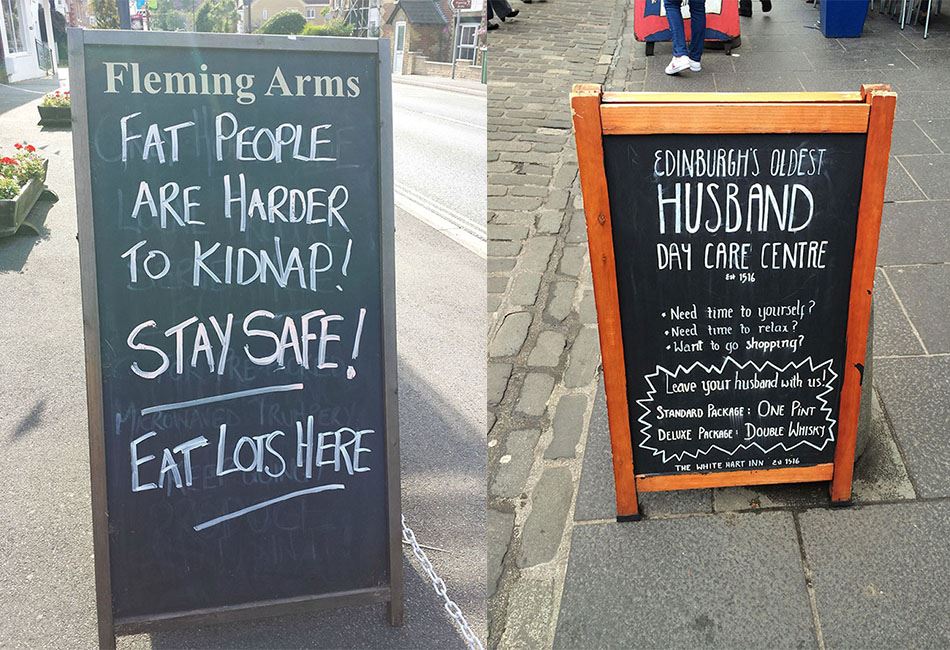 Fleming Arms
FAT PEOPLE
ARE HARDER
TO KIDNAP!
STAY SAFE!
EAT LOTS HERE
EDINBURGH'S OLDEST
HUSBAND
DAY CARE CENTRE
Est 1516
• Need time to yourself?
• Need time to relax?
• Want to go shopping?
Leave your husband with us!
STANDARD PACKAGE: ONE PINT
DELUXE PACKAGE: DOUBLE WHISKY
THE WHITE HART INN
1516